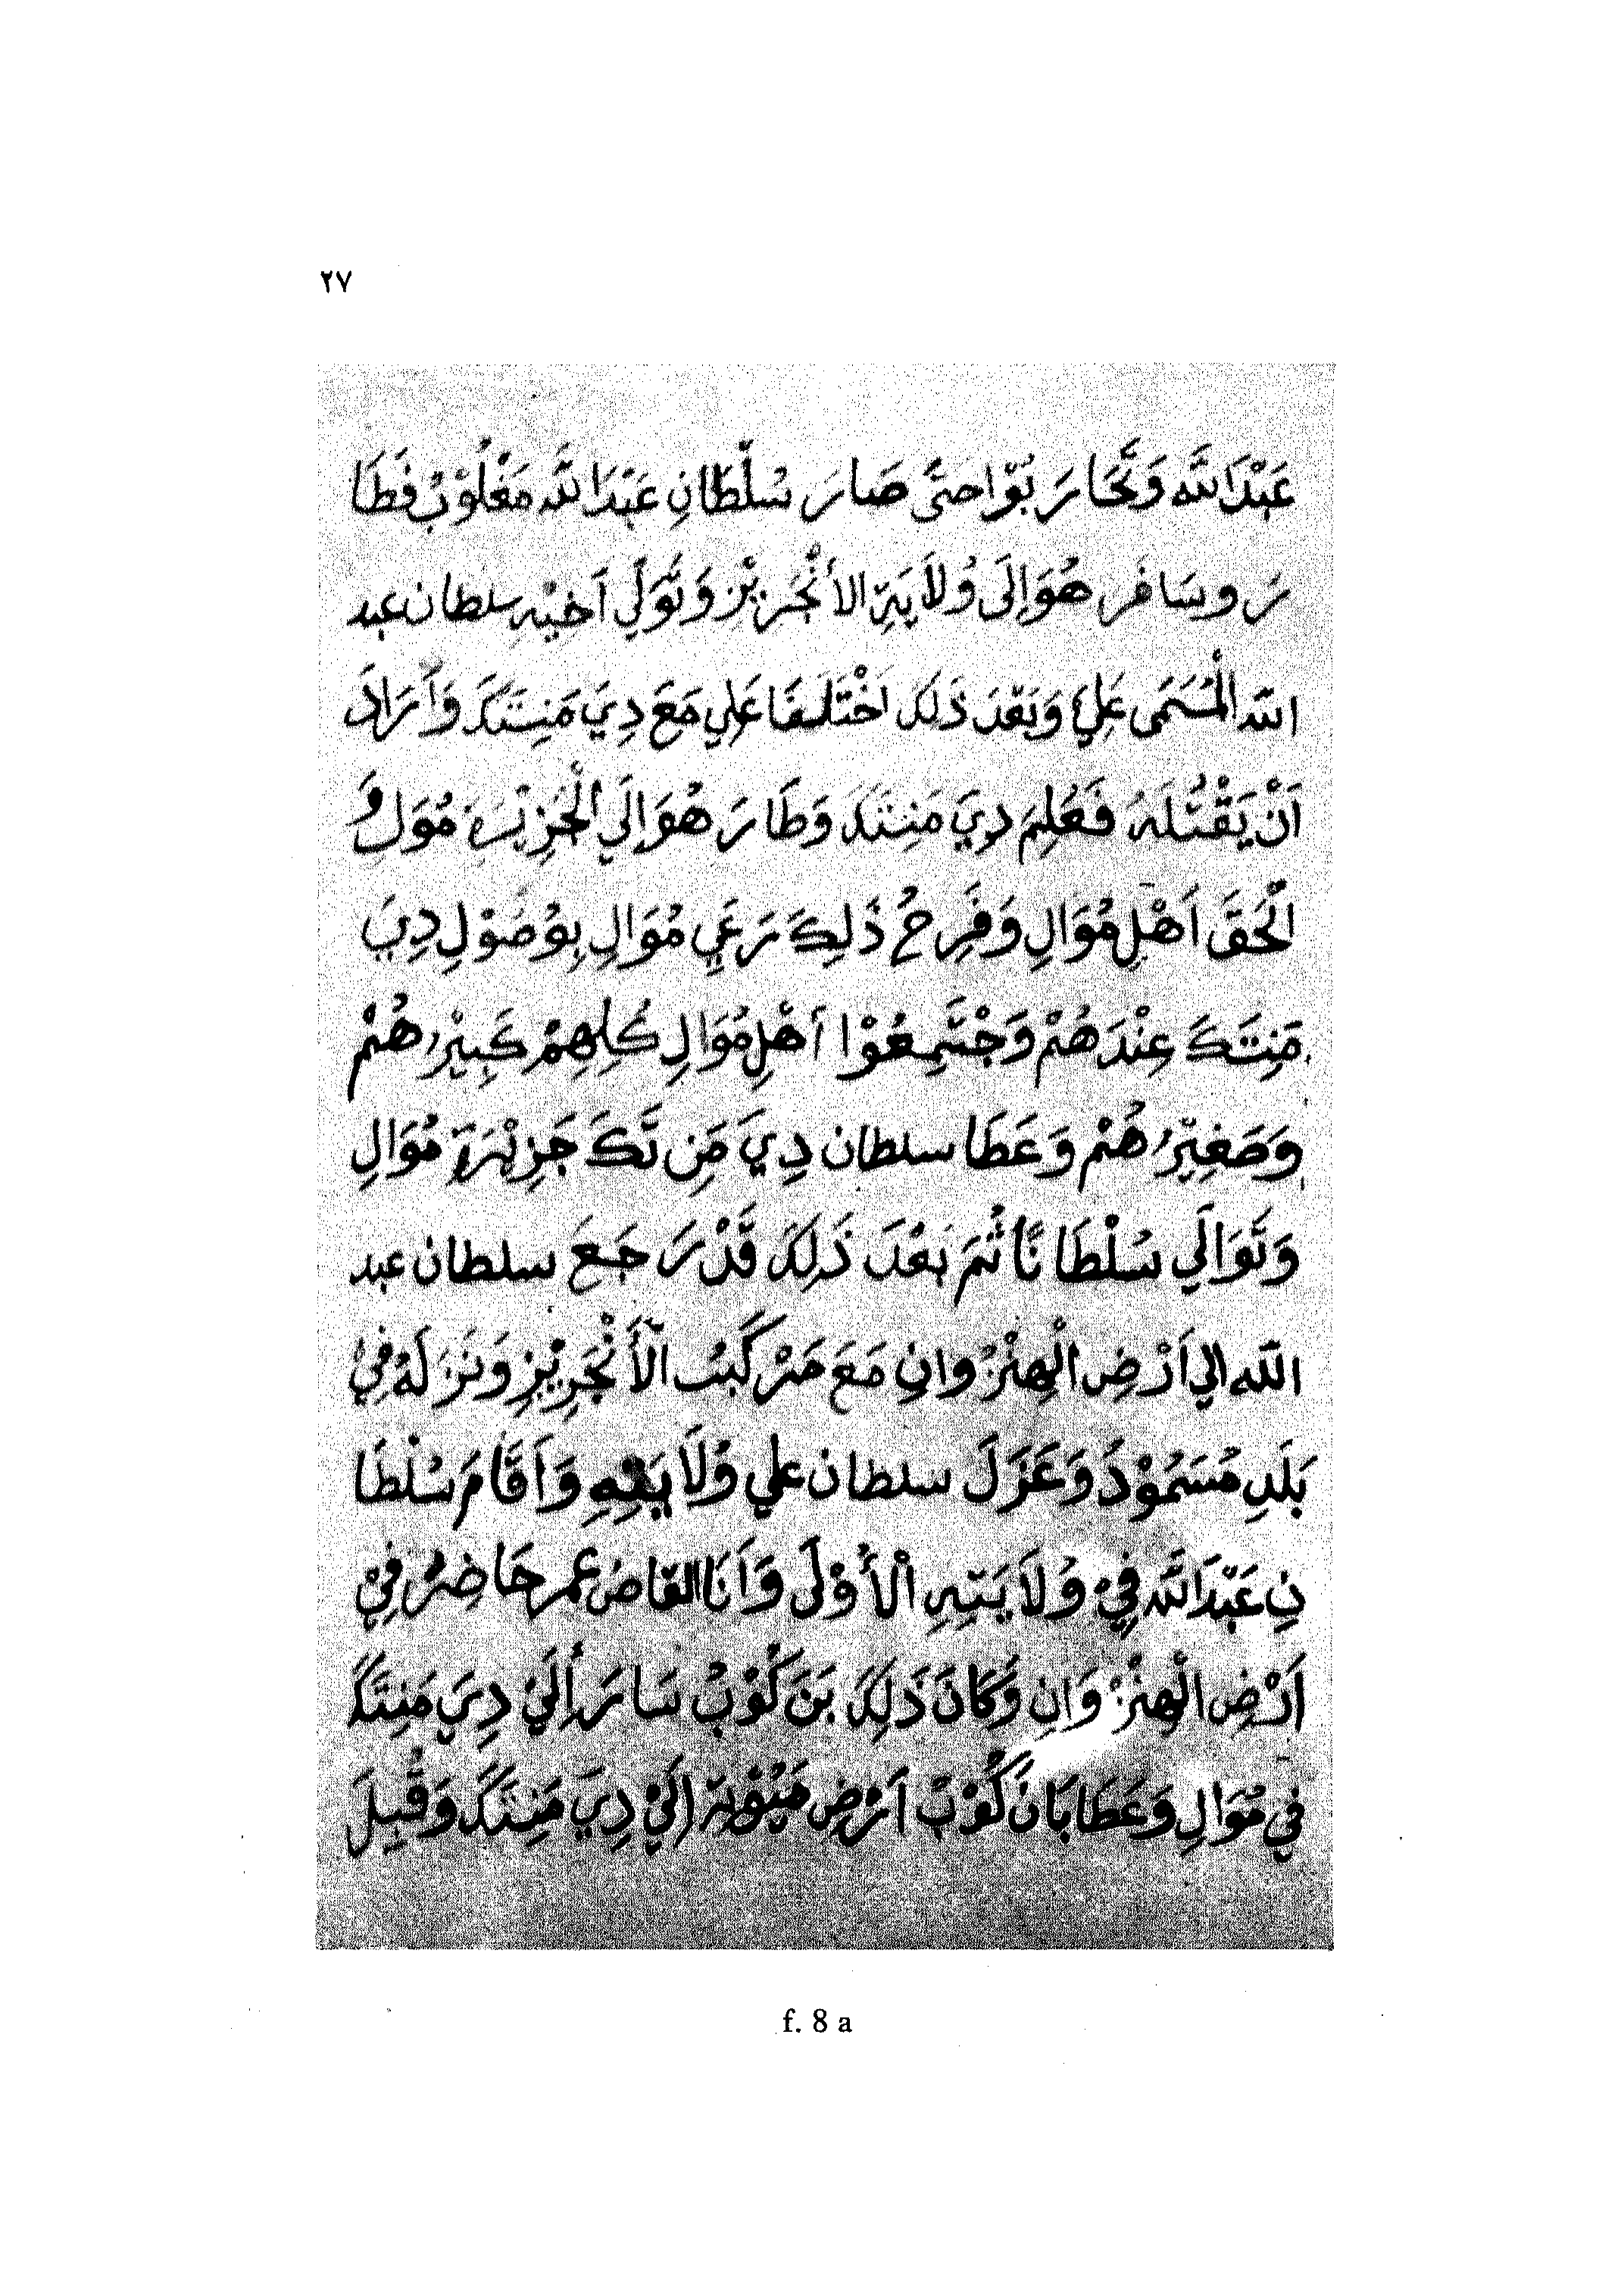 ٢٧
عَبْدَاللَّه وَتَّحَارَبُوّاحَتَّى صَارَ سُلْطَانِ عَبْدَاللَّه مَغْلُوْبُ فَطَا
رَ وسَافَر هُوَاِلَى وُلَايَةِ الاَنْجَرِيْز وَتُوَلَّي آخِيْهِ سلطان عبد
الله الْمُسَمَى عَلِيْ وَبَعْدَ ذَلِكَ اخْتَلَفَا عَلِي مَعَ دِيَ مَنِتَكَ وَاَرَادَ
اَنْ يَقْتُلَهُ فَعُلِمَ دِيَ مَنِتَكَ وَطَارَ هُوَاِلَي الْجَزِيْرَةِ مُوَلِ وُ
الْحَقَ اَهْلِ مُوَالِ وَفَرِحُ ذَلِكَ رَعَيِ مُوَالِ بِوُصُوْلِ دِيَ
مَنِتَكَ عِنْدَهُمْ وَجْتَمِعُوْا اَهْلِ مُوَالِ كُلِهِمْ كَبِيْرُهُمْ
وَصَغِيْرُهُمْ وَعَطَا سلطان دِيَ مَنِ تَّكَ جَزِيْرَةَ مُوَالِ
وَتَوَالَي سُلْطَانًا ثُمَ بَعْدَ ذَلِكَ قَدْ رَجَعَ سلطان عبد
الله الي اَرْضِ الْهِنْزُوانِ مَعَ مَرْكَبُ الْأَنْجَرِيْزِ وَنَزَلَهُ فِيْ
بَلَدِ مُسَمُوْدُ وَعَزَلَ سلطان علي وُلَايَتِهِ وَاَقَامَ سُلْطَا
نِ عَبْدَاللَّه فِيْ وُلَايَتِهِ الْأُوْلَى وَاَنَا القاضِ عمر حَاضِرُ فِيْ
اَرْضِ الْهِنْزُوَانِ وَكَانَ ذَلِكَ بَنَ كُوْبُ سَارَ اِلَيْ دِيَ مَنِتَكَ
فِي مُوَالِ وَعَطَا بَانَ كُوْبُ اَرْضِ مَيُوْتَةِ اِلَيْ دِيَ مَنِتَكَ وَقُبِلَ
f. 8 a